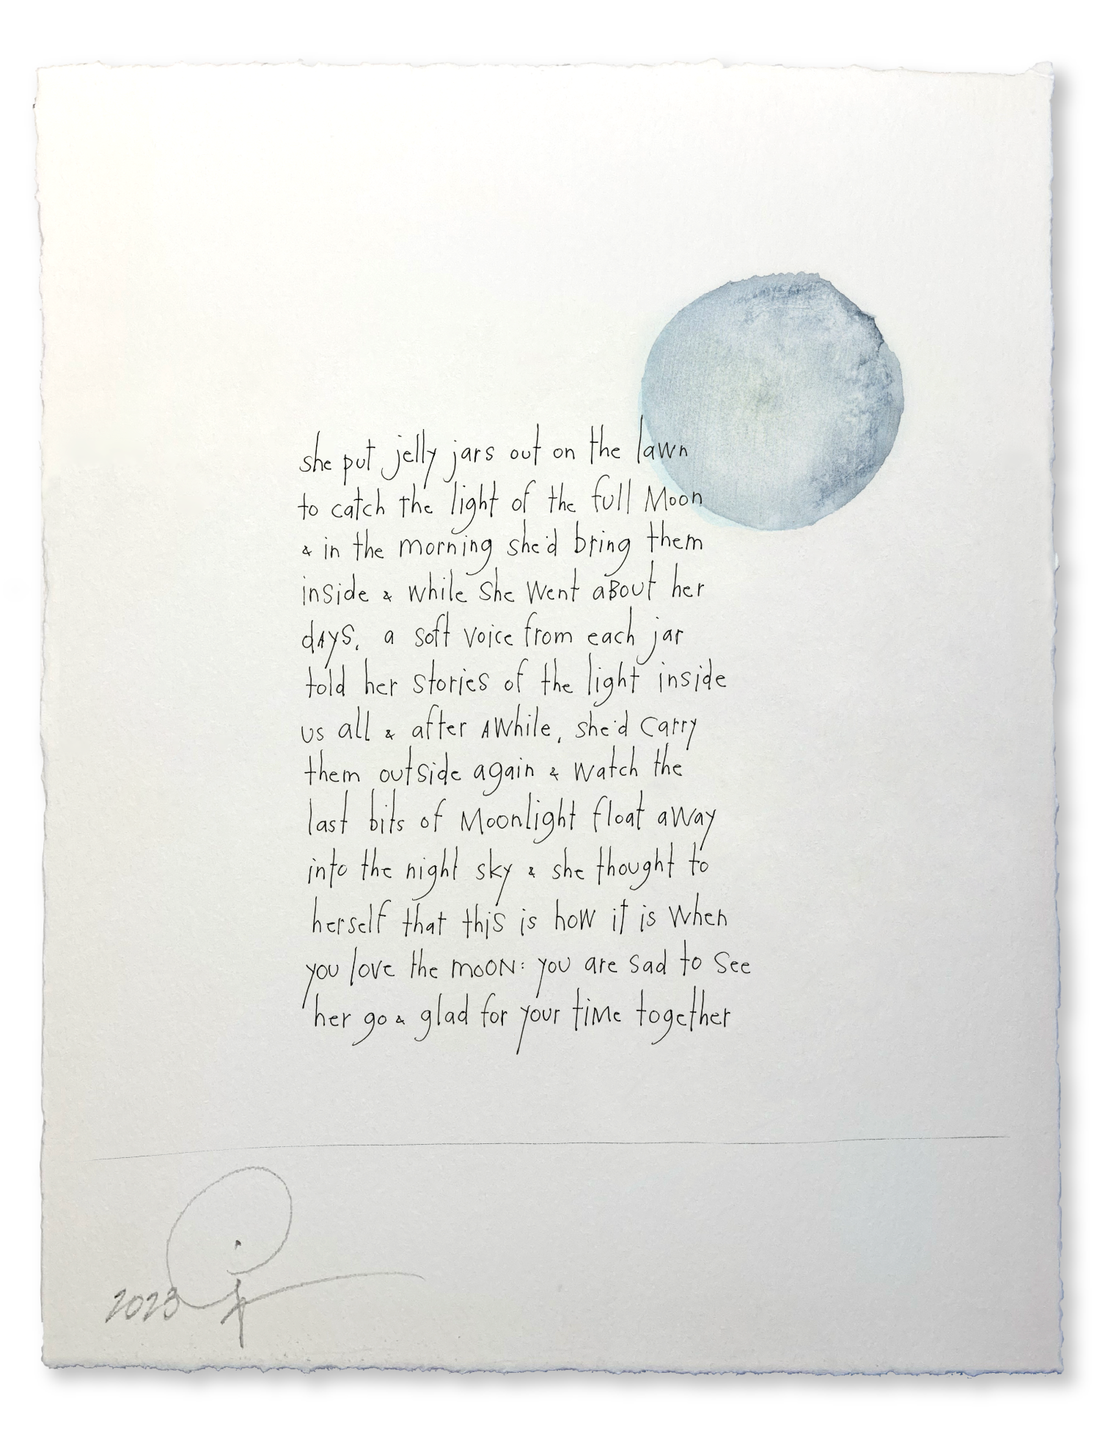 she put jelly jars out on the lawn
to catch the light of the full Moon
& in the morning she'd bring them
inside & while she went aBout her
dAyS, a soft voice from each jar
told her stories of the light inside
us all & after Awhile, she'd carry
them outside again & watch the
last bits of Moonlight float away
into the night sky & she thought to
herself that this is how it is when
you love the mOON: you are sad to see
her go & glad for your time together
2023